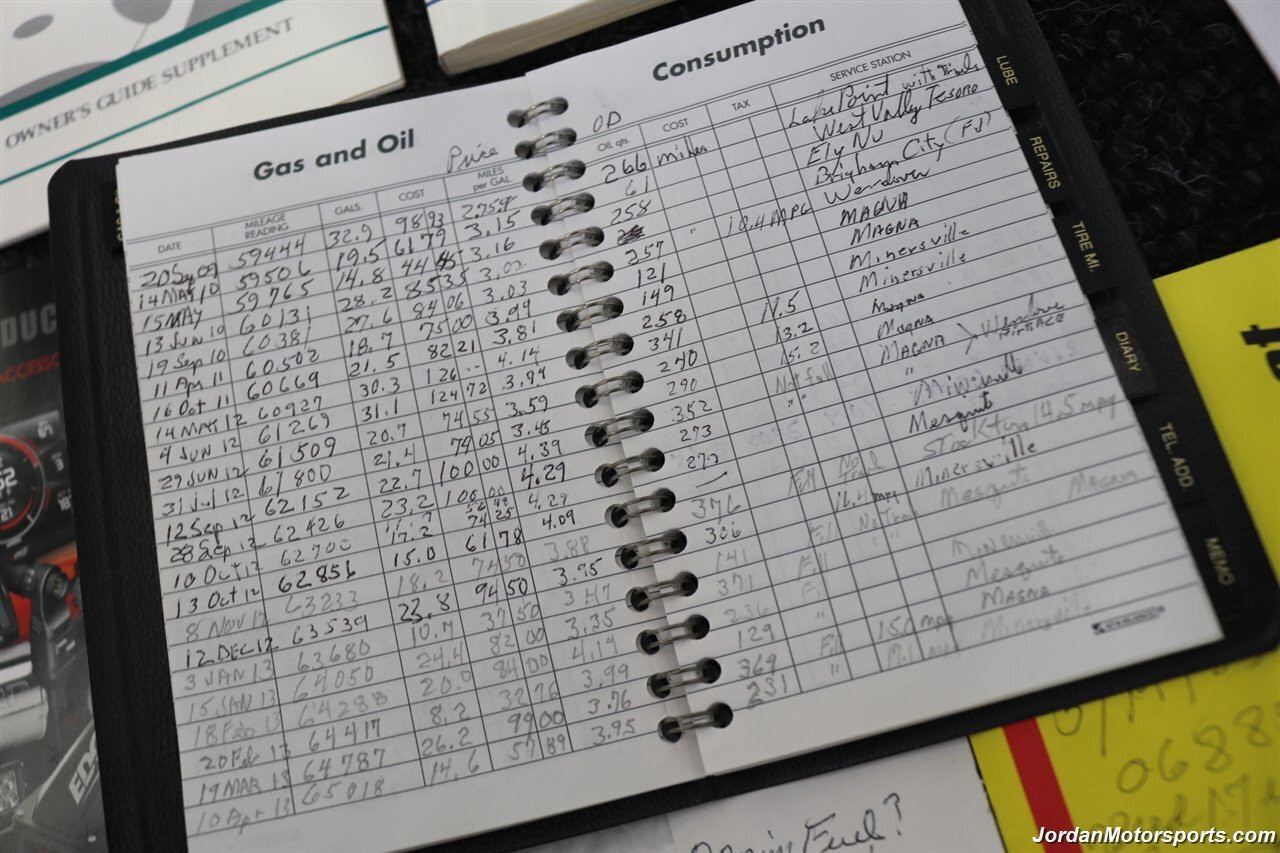 OWNER'S GUIDE SUPPLEMENT
Gas and Oil
Price
DATE MILEAGE READING GALS. COST MILES per GAL.
20 Sep 09 59444 32.9 98 93
14 MAY 10 59506 19.5 61 79 3.15
15 MAY 59765 14.8 3.16
13 Jun 10 60131 28.2 85 35 3.02
19 Sep 10 60381 27.6 84 06 3.03
11 Apr 11 60502 18.7 75 00 3.99
16 Oct 11 60669 21.5 82 21 3.81
14 MAY 12 60927 30.3 126 -- 4.14
4 JUN 12 61269 31.1 124 72 3.94
29 JUN 12 61509 20.7 74 55 3.59
31 Jul 12 61800 21.4 74 05 3.45
12 Sep 12 62152 22.7 100 00 4.39
28 Sep 12 62426 23.2 100 00 4.29
10 Oct 12 62700 17.2 74 25 4.29
13 Oct 12 62856 15.0 61 78 4.09
8 NOV 12 63233 18.2 74 50 3.88
12 DEC 12 63539 23.8 94 50 3.95
3 JAN 13 63680 10.7 37 50
15 JAN 13 64050 24.4 82 00 3.35
18 Feb 13 64288 20.0 84 00 4.19
20 Feb 13 64417 8.2 32 76 3.99
19 MAR 13 64787 26.2 99 00 3.76
10 Apr 13 65018 14.6 57 89 3.95
Consumption
OD
Oil qts. COST TAX SERVICE STATION
266 miles Lake Point with
61 West Valley Tesoro
258 Ely Nv
Brigham City
257 " 18.4 MPG Wendover
121 MAGNA
149 MAGNA
258 Minersville
341 11.5 Minersville
240 13.2 Magna
290 15.2 MAGNA
352 Not full MAGNA
273 " " "
273
376 Fill No Mesquite
306 16.1 mpg Stockton 14.5 mpg
141 Fill Minersville
371 Fill Mesquite Magna
236 "
129 Fill 15.0 mpg Mesquite
369 " 17.1 Magna
231
LUBE
REPAIRS
TIRE MI.
DIARY
TEL. ADD.
MEMO
Fuel?
JordanMotorsports.com